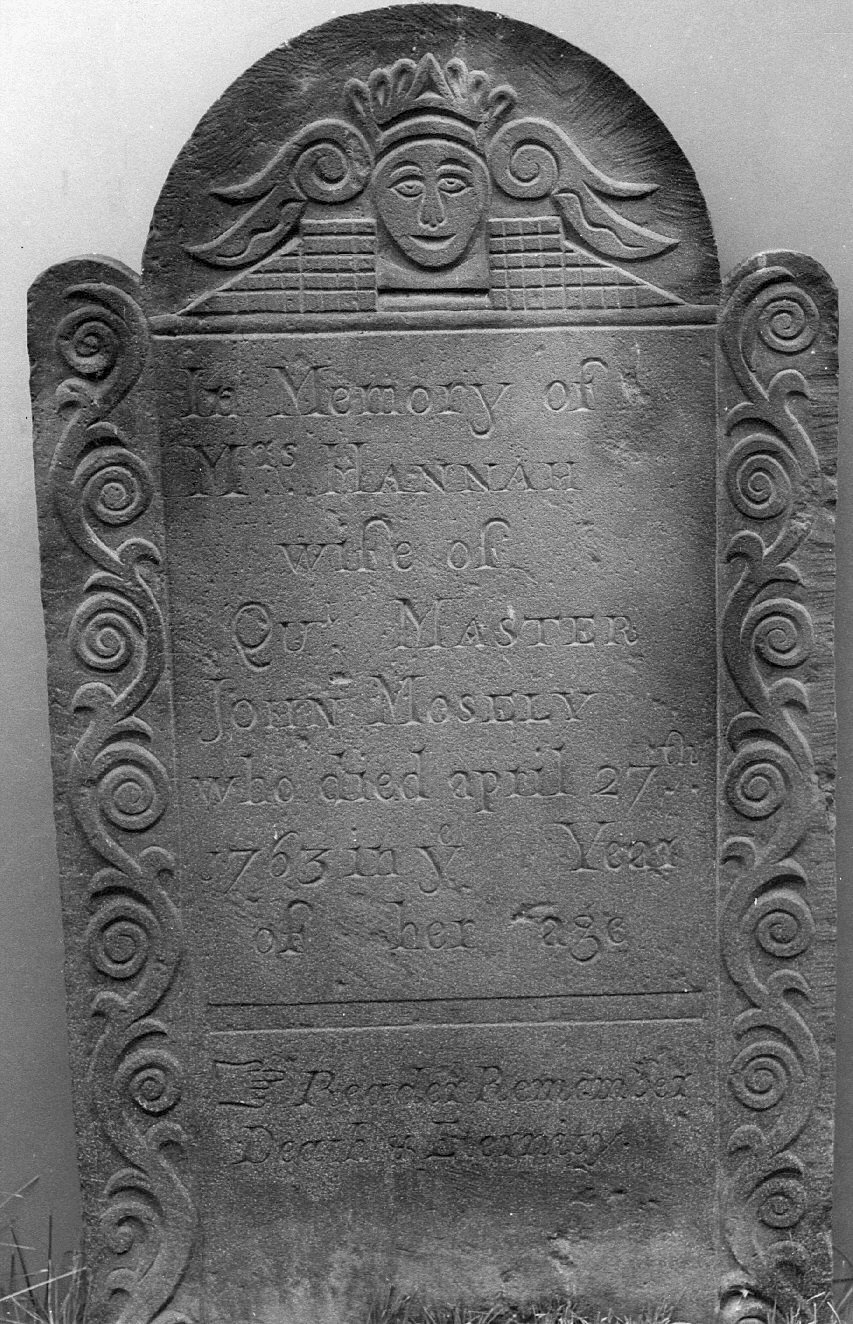 In Memory of
Mrs HANNAH
wife of
QUr. MASTER
JOHN MOSELY
who died april 27th.
1763 in ye Year
of her age
☞ Reader Remember
Death & Eternity.